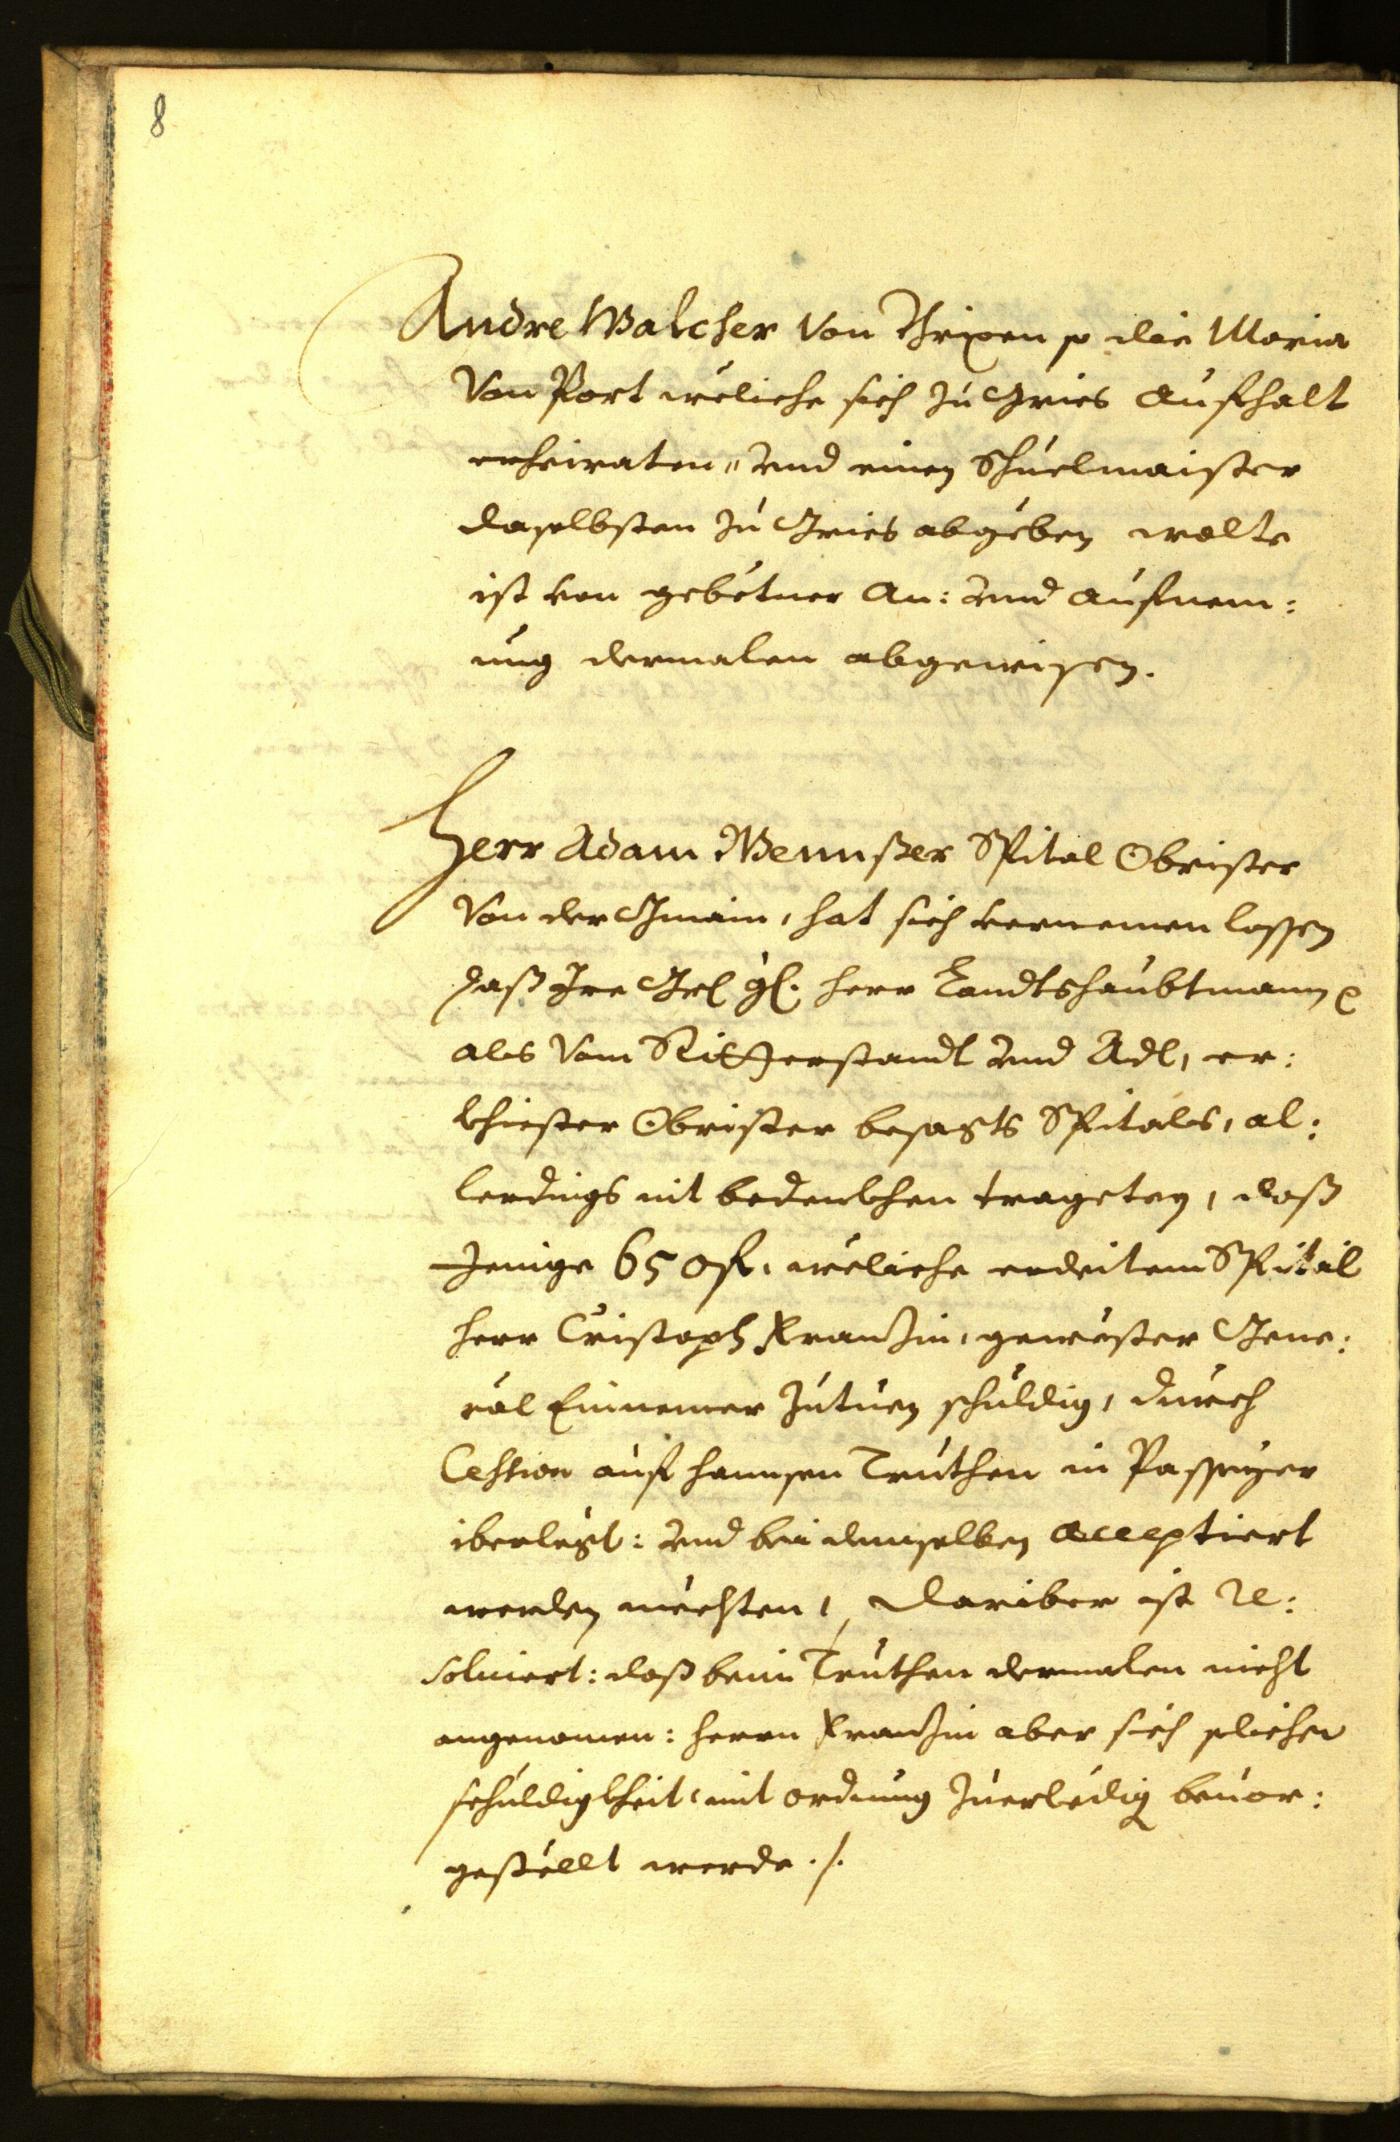 8
Andre Walcher von Brixen so die Maria
von Port weliche sich zu Gries aufhalt
erheiraten, und einen Schuelmaister
daselbsten zu Gries abgeben wolte
ist von gebetner An: und aufnem:
ung dermalen abgewisen.
Herr Adam Wennßer Spital Obrister
von der Gmain, hat sich vernemen lassen
daß Ire Grl gl. herr Landtshaubtmann
als vom Ritterstandt und Adl, er:
khiester Obrister besagts Spitales, al:
lerdings nit bedenkhen trageten, daß
Jenige 650 fl. weliche erdeitem Spitäl
herr Cristoph Kranzin, gewester Gene:
ral Einnemer zutuen schuldig, durch
Cession auf hannsen Truthen in Passeyer
iberlegt: und bei demselben acceptiert
werden mechten, Dariber ist re:
solviert: daß beim Truthen dermalen nicht
angenomen: herrn Kranzin aber sich solicher
schuldigkheit mit ordnung zuerledig bevor:
gestellt werde ./.